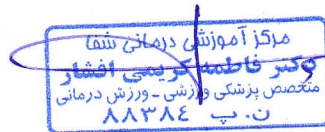 مرکز آموزشی درمانی شفا
دکتر فاطمه کریمی افشار
متخصص پزشکی ورزشی - ورزش درمانی
ن. پ ۸۸۳۸٤